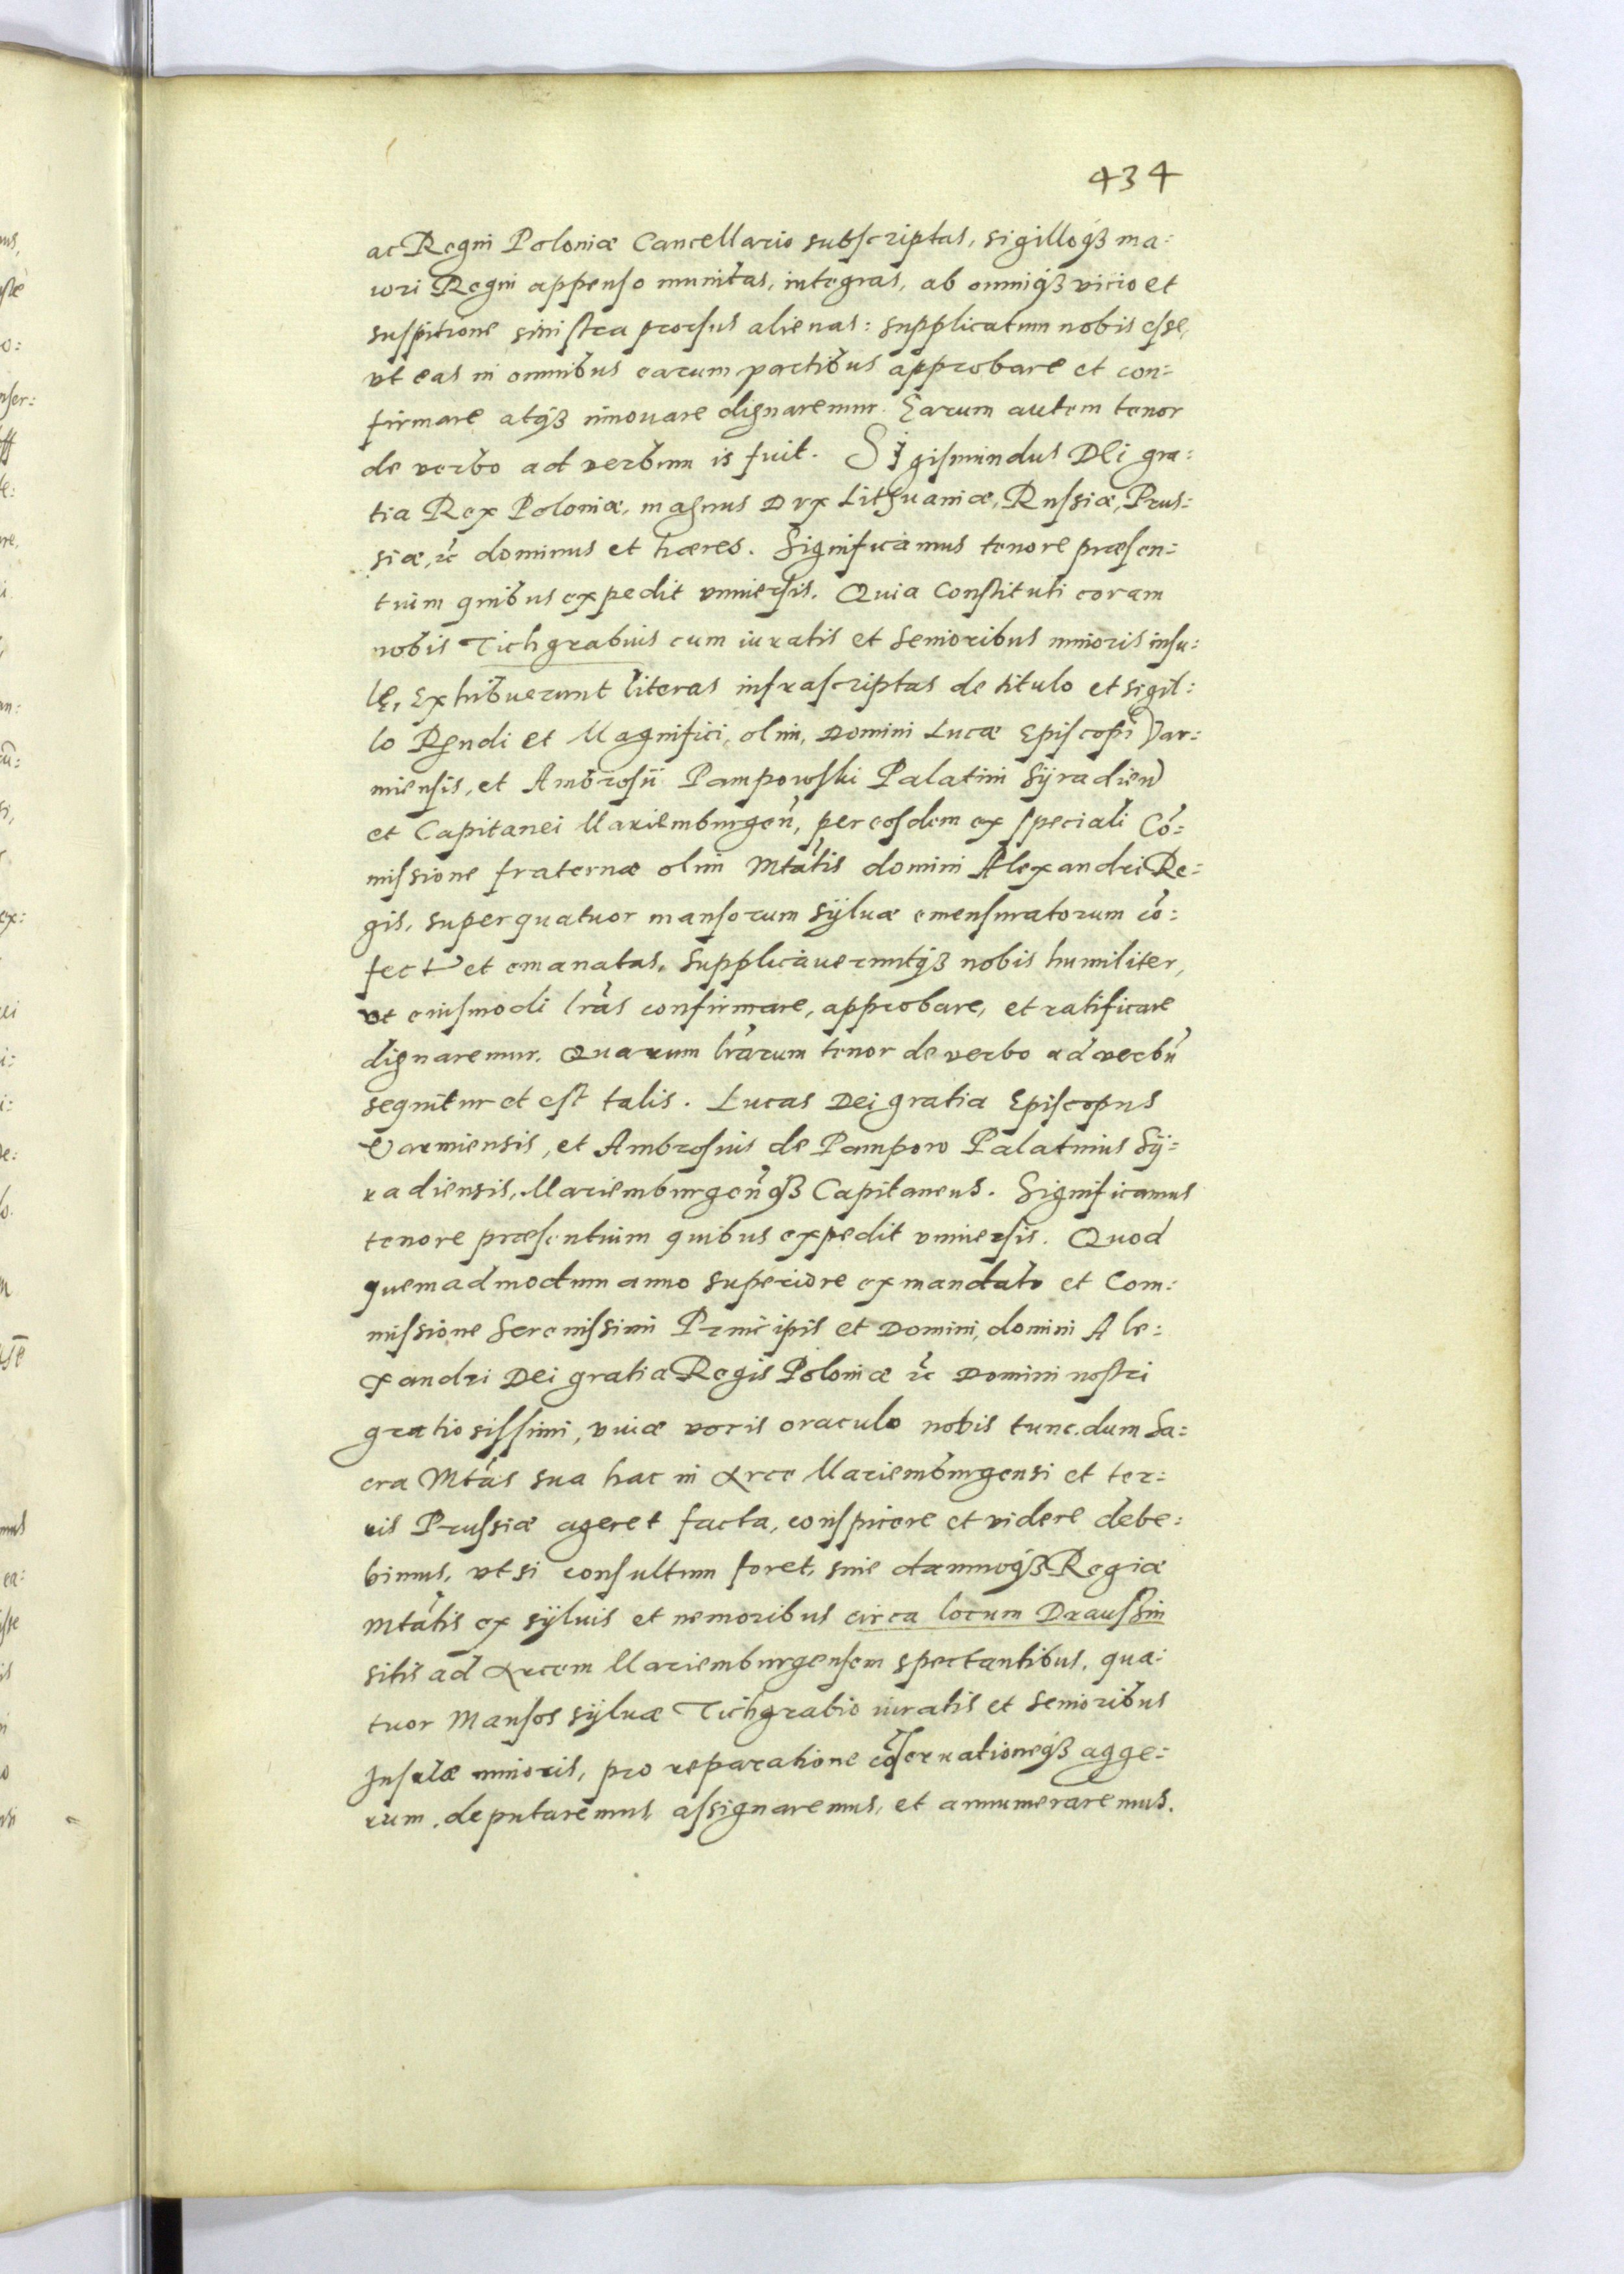 434
ac Regni Poloniæ Cancellario subscriptas, sigilloqꝫ ma:
iori Regni appenso munitas, integras, ab omniqꝫ vicio et
suspitione sinistra prorsus alienas: supplicatum nobis esse,
vt eas in omnibus earum partibus approbare et con:
firmare atqꝫ innouare dignaremur. Earum autem tenor
de verbo ad verbum is fuit. Sigismundus Dei gra:
tia Rex Poloniæ, magnus Dux Lithuaniæ, Russiæ, Prus:
siæ, ꝛc dominus et hæres. Significamus tenore præsen:
tium quibus expedit vniuersis. Quia Constituti coram
nobis Tichgrabius cum iuratis et Senioribus minoris insu:
lę, Exhibuerunt literas infrascriptas de titulo et sigil:
lo Rendi et Magnifici, olim, Domini Lucæ Episcopi Var:
miensis, et Ambrosii Pampowski Palatini Syradien
et Capitanei Mariemburgen̄, per eosdem ex speciali Cō:
missione fraternæ olim Mtātis domini Alexandri Re:
gis, super quatuor mansorum syluæ emensuratorum cō:
fect et emanatas, Supplicaueruntqꝫ nobis humiliter,
vt eiusmodi lr̄as confirmare, approbare, et ratificare
dignaremur. Quarum lr̄arum tenor de verbo ad verbū
sequitur et est talis. Lucas Dei gratia Episcopus
Varmiensis, et Ambrosius de Pampow Palatinus Sy:
radiensis, Mariemburgen̄qꝫ Capitaneus. Significamus
tenore præsentium quibus expedit vniuersis. Quod
quemadmodum anno superiore ex mandato et Com:
missione Serenissimi Principis et Domini, domini Ale:
xandri Dei gratia Regis Poloniæ ꝛc Domini nostri
gratiosissimi, viuæ vocis oraculo nobis tunc. dum Sa:
cra Mtās sua hac in Arce Mariemburgensi et ter:
ris Prussiæ ageret facta, conspicere et videre debe:
bimus, vt si consultum foret, sine damnoqꝫ Regiæ
Mtātis ex syluis et nemoribus circa locum Draussin
sitis ad Arcem Mariemburgensem spectantibus, qua:
tuor Mansos syluæ Tichgrabio iuratis et Senioribus
Insulæ minoris, pro reparatione cōseruationeqꝫ agge:
rum, deputaremus, assignaremus, et annumeraremus.